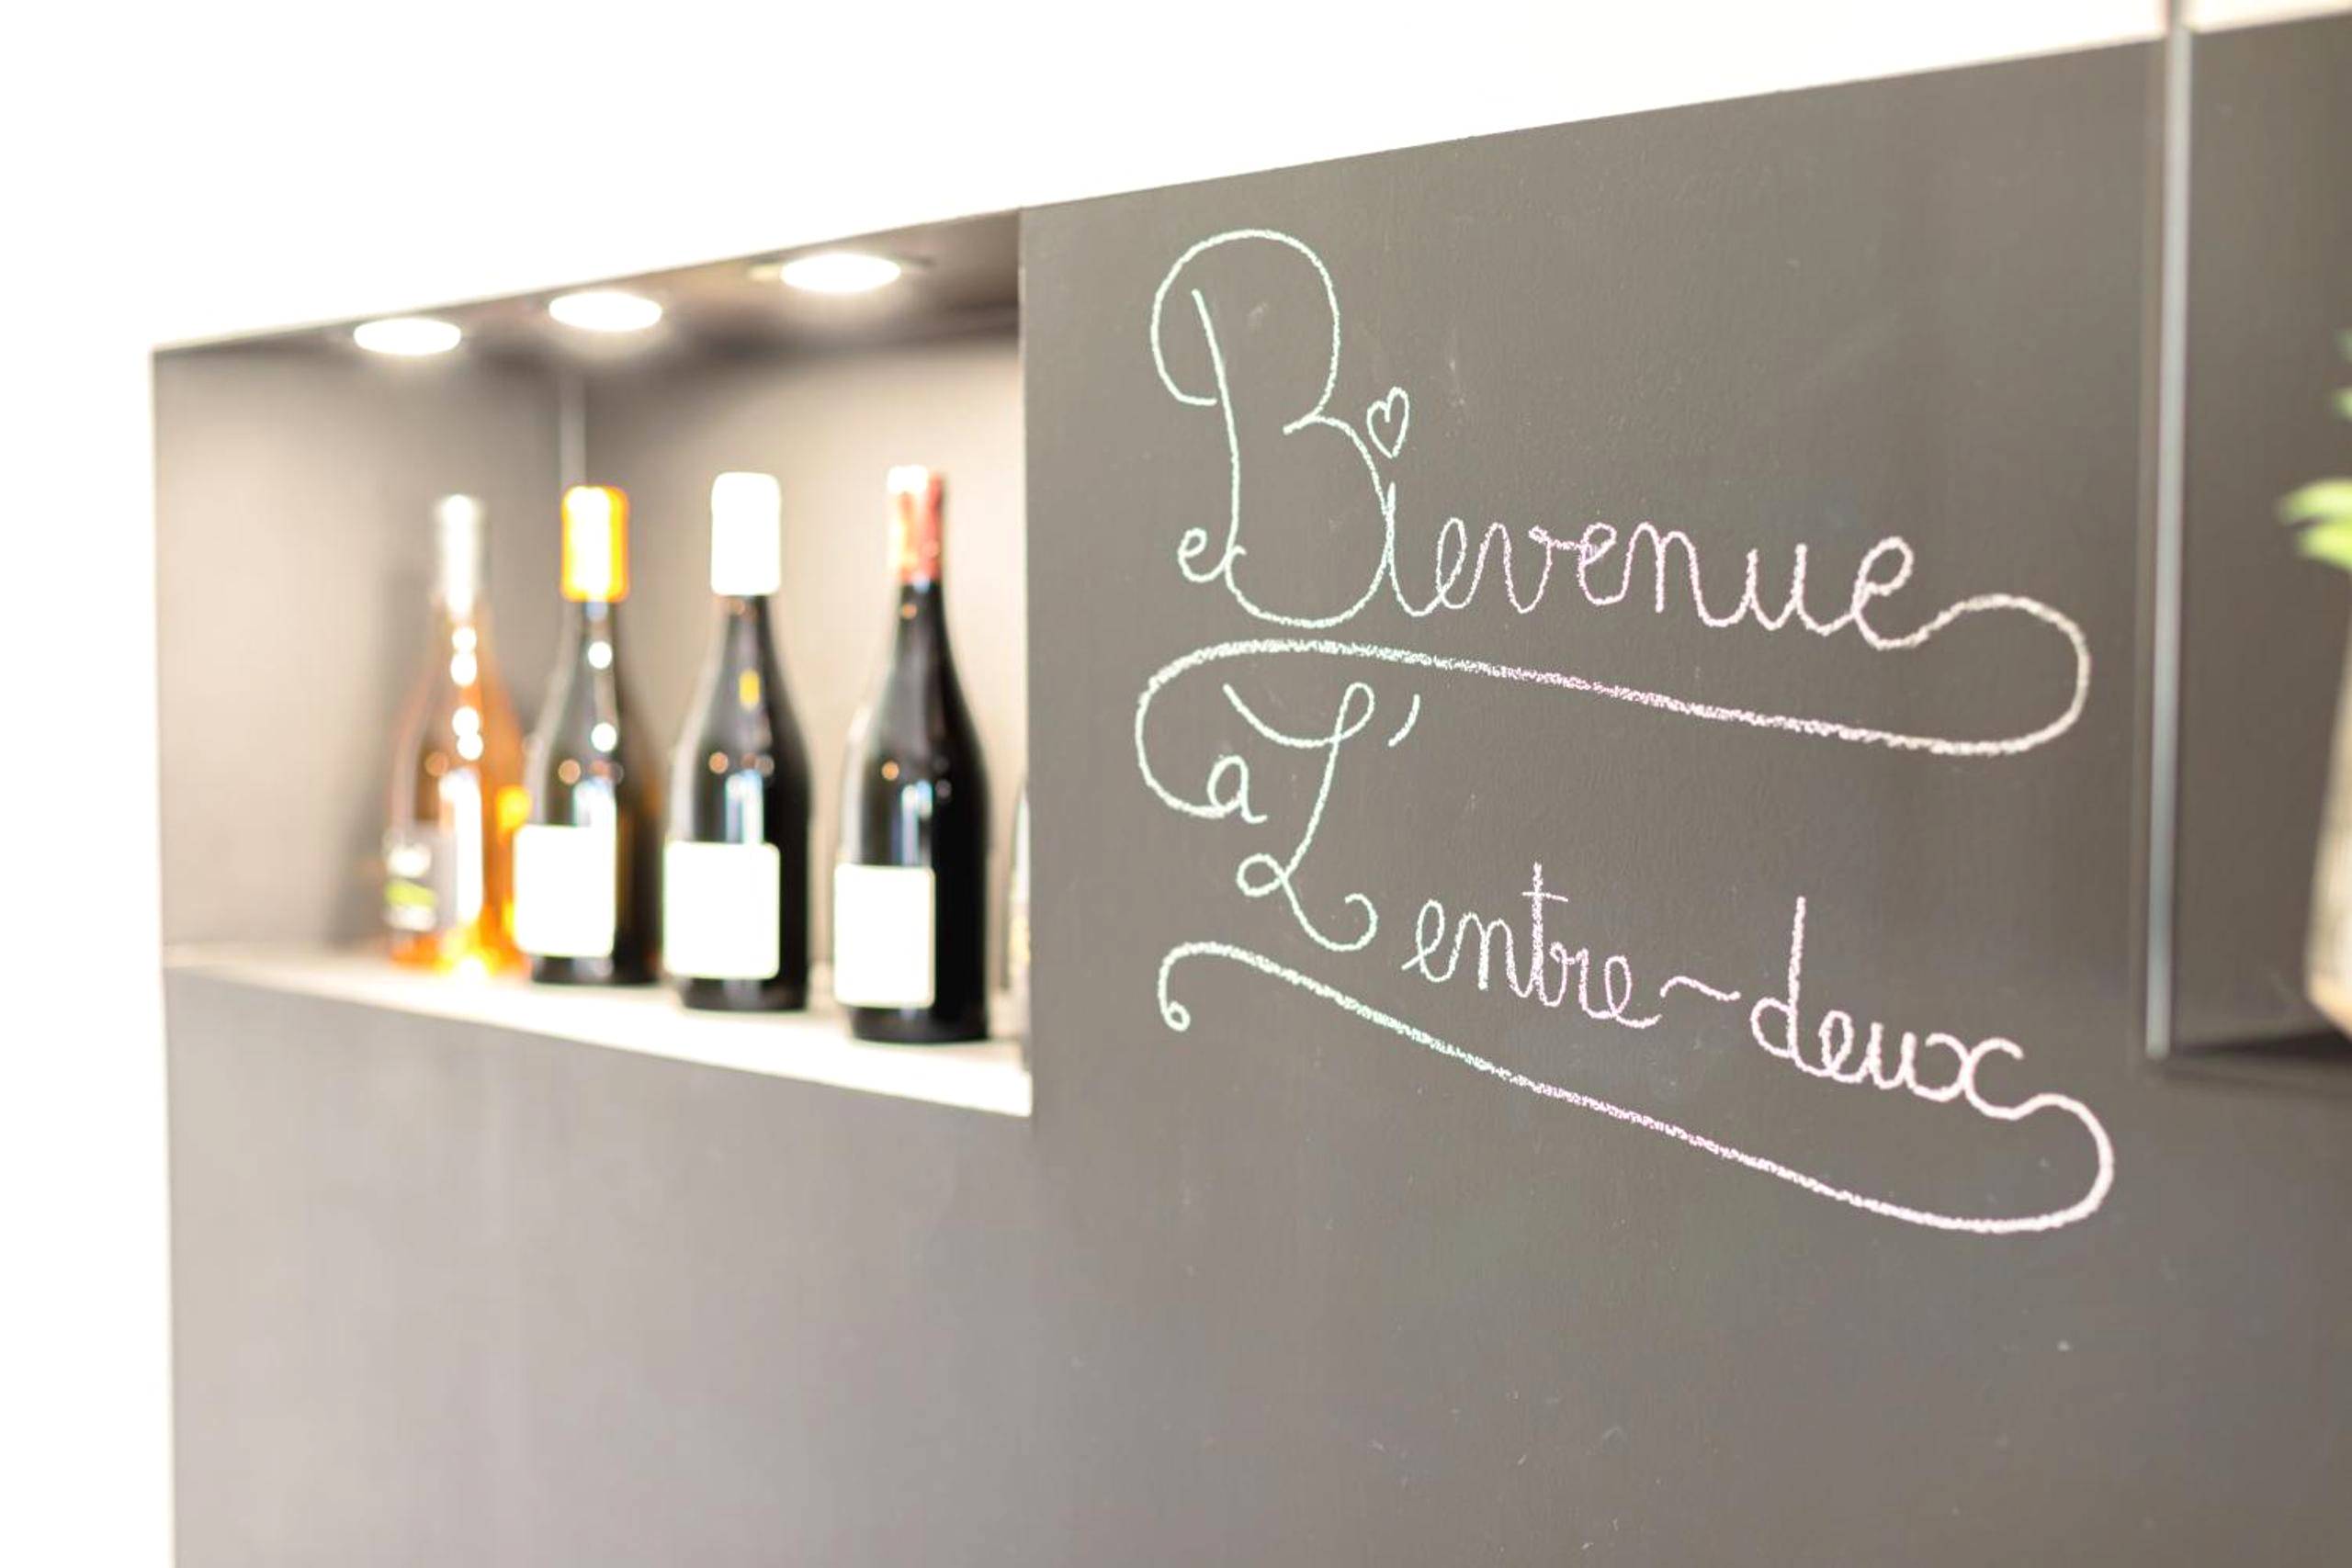 Bievenue
a L'entre-deux